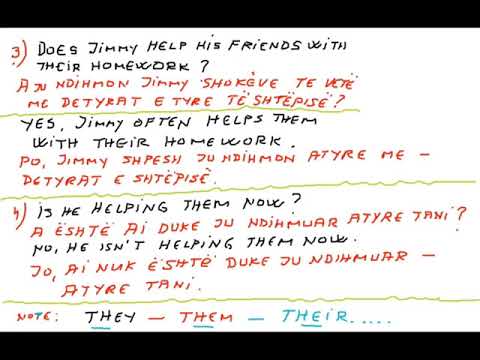 3) DOES JIMMY HELP HIS FRIENDS WITH
THEIR HOMEWORK?
A JU NDIHMON JIMMY SHOKËVE TE VETË
ME DETYRAT E TYRE TË SHTËPISË?
YES, JIMMY OFTEN HELPS THEM
WITH THEIR HOMEWORK.
PO, JIMMY SHPESH JU NDIHMON ATYRE ME –
DETYRAT E SHTËPISË.
4) IS HE HELPING THEM NOW?
A ËSHTË AI DUKE JU NDIHMUAR ATYRE TANI?
NO, HE ISN'T HELPING THEM NOW.
JO, AI NUK ËSHTË DUKE JU NDIHMUAR –
ATYRE TANI.
NOTE: THEY – THEM – THEIR.....